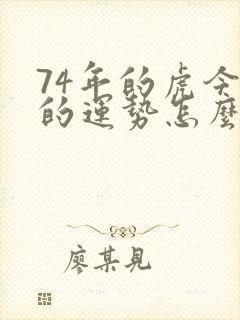 74年的虎今
的运势怎麼
廖某見